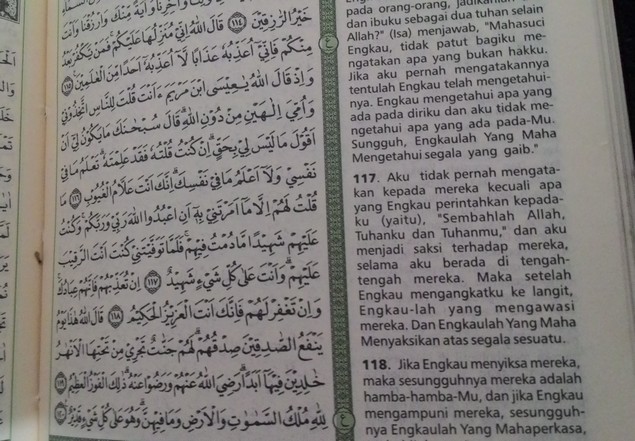 خَيْرُ الرّٰزِقِيْنَ ١١٤ قَالَ اللّٰهُ اِنِّيْ مُنَزِّلُهَا عَلَيْكُمْ فَمَنْ يَّكْفُرْ بَعْدُ
مِنْكُمْ فَاِنِّيْٓ اُعَذِّبُهٗ عَذَابًا لَّآ اُعَذِّبُهٗٓ اَحَدًا مِّنَ الْعٰلَمِيْنَ ١١٥
وَاِذْ قَالَ اللّٰهُ يٰعِيْسَى ابْنَ مَرْيَمَ ءَاَنْتَ قُلْتَ لِلنَّاسِ اتَّخِذُوْنِيْ
وَاُمِّيَ اِلٰهَيْنِ مِنْ دُوْنِ اللّٰهِ ۗقَالَ سُبْحٰنَكَ مَا يَكُوْنُ لِيْٓ اَنْ
اَقُوْلَ مَا لَيْسَ لِيْ بِحَقٍّ ۗاِنْ كُنْتُ قُلْتُهٗ فَقَدْ عَلِمْتَهٗ ۗتَعْلَمُ مَا فِيْ
نَفْسِيْ وَلَآ اَعْلَمُ مَا فِيْ نَفْسِكَ ۗاِنَّكَ اَنْتَ عَلَّامُ الْغُيُوْبِ ١١٦ مَا
قُلْتُ لَهُمْ اِلَّا مَآ اَمَرْتَنِيْ بِهٖٓ اَنِ اعْبُدُوا اللّٰهَ رَبِّيْ وَرَبَّكُمْ ۚوَكُنْتُ
عَلَيْهِمْ شَهِيْدًا مَّا دُمْتُ فِيْهِمْ ۚفَلَمَّا تَوَفَّيْتَنِيْ كُنْتَ اَنْتَ الرَّقِيْبَ
عَلَيْهِمْ ۗوَاَنْتَ عَلٰى كُلِّ شَيْءٍ شَهِيْدٌ ١١٧ اِنْ تُعَذِّبْهُمْ فَاِنَّهُمْ عِبَادُكَ ۚ
وَاِنْ تَغْفِرْ لَهُمْ فَاِنَّكَ اَنْتَ الْعَزِيْزُ الْحَكِيْمُ ١١٨ قَالَ اللّٰهُ هٰذَا يَوْمُ
يَنْفَعُ الصّٰدِقِيْنَ صِدْقُهُمْ ۗلَهُمْ جَنّٰتٌ تَجْرِيْ مِنْ تَحْتِهَا الْاَنْهٰرُ
خٰلِدِيْنَ فِيْهَآ اَبَدًا ۗرَضِيَ اللّٰهُ عَنْهُمْ وَرَضُوْا عَنْهُ ۗذٰلِكَ الْفَوْزُ الْعَظِيْمُ ١١٩
لِلّٰهِ مُلْكُ السَّمٰوٰتِ وَالْاَرْضِ وَمَا فِيْهِنَّ ۗوَهُوَ عَلٰى كُلِّ شَيْءٍ قَدِيْرٌ ١٢٠
dan ibuku sebagai dua tuhan selain
Allah?" (Isa) menjawab, "Mahasuci
Engkau, tidak patut bagiku me-
ngatakan apa yang bukan hakku.
Jika aku pernah mengatakannya
tentulah Engkau telah mengetahui-
nya. Engkau mengetahui apa yang
ada pada diriku dan aku tidak me-
ngetahui apa yang ada pada-Mu.
Sungguh, Engkaulah Yang Maha
Mengetahui segala yang gaib."
117. Aku tidak pernah mengata-
kan kepada mereka kecuali apa
yang Engkau perintahkan kepada-
ku (yaitu), "Sembahlah Allah,
Tuhanku dan Tuhanmu," dan aku
menjadi saksi terhadap mereka,
selama aku berada di tengah-
tengah mereka. Maka setelah
Engkau mengangkatku ke langit,
Engkau-lah yang mengawasi
mereka. Dan Engkaulah Yang Maha
Menyaksikan atas segala sesuatu.
118. Jika Engkau menyiksa mereka,
maka sesungguhnya mereka adalah
hamba-hamba-Mu, dan jika Engkau
mengampuni mereka, sesungguh-
nya Engkaulah Yang Mahaperkasa,